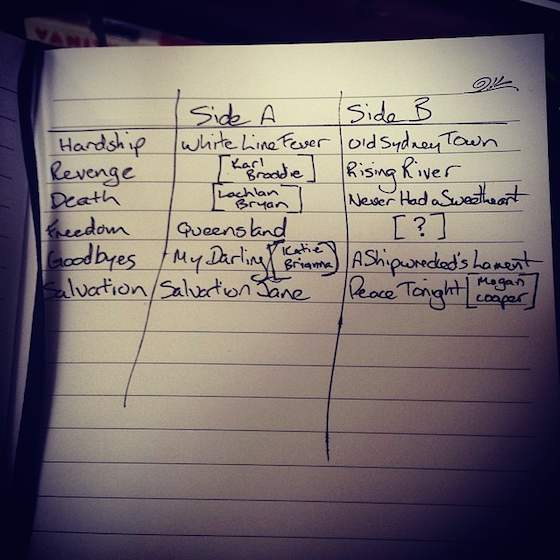 Side A Side B
Hardship White Line Fever Old Sydney Town
Revenge [Karl Broadie] Rising River
Death [Lachlan Bryan] Never Had a Sweetheart
Freedom Queensland [?]
Goodbyes My Darling [Katie Brianna] A Shipwrecked's Lament
Salvation Salvation Jane Peace Tonight [Megan Cooper]